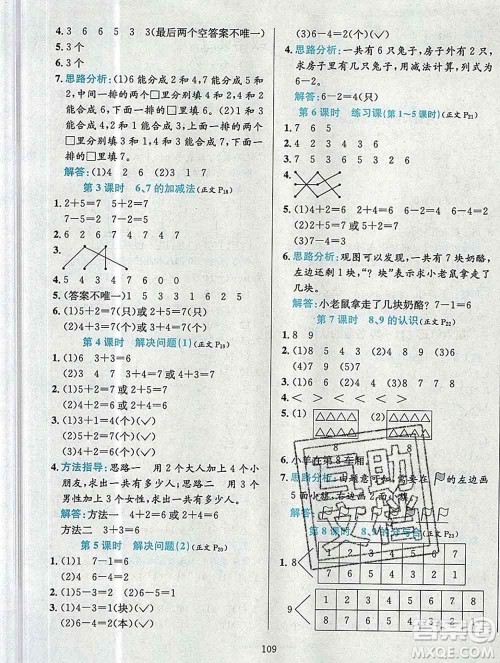 4. 3 6 6 5 3 3(最后两个空答案不唯一)
5. 3个
6. 3个
7. 思路分析:(1)6能分成2和4,7能分成5和
2,中间一排的两个□里分别填4和2,4和2
能合成6,下面一排的两个□里分别填5和1,
5和1能合成6。(2)4和3能合成7,最上排
的两个□里分别填3和1,3和1能合成4,下
面一排的两个□里分别填3和4,3和4能合
成7。
解答:(1)4 2 6 (2)3 1 7
第3课时 6、7的加减法(正文P18)
1. 2+5=7 5+2=7
2. 6 7 7 6 6 7
3.
4. 1 3 4 4
5.(答案不唯一)1 5 3 3 1 6 2 5
6. (1)5+2=7(只)或2+5=7(只)
(2)4+3=7(个)或3+4=7(个)
第4课时 解决问题(1)(正文P19)
1. (1)6 3+3=6 (2)7 3+4=7
2. (1)5+2=7或2+5=7
(2)5+1=6或1+5=6
3. (1)4+2=6(个)(√)
(2)4+3=7(个)(√)
4. 方法指导:思路一 用2个大人加上4个小
朋友,求出一共有多少人。思路二 用3个
男性加上3个女性,求出一共有多少人。
解答:方法一 2+4=6或4+2=6
方法二 3+3=6
第5课时 解决问题(2)(正文P20)
1. (1)1 7-1=6
(2)2 7-2=5
2. (1)6-2=4 (2)7-4=3
3. (1)5-4=1(块)(√)
(2)7-5=2(本)(√)
(3)6-4=2(个)(√)
4. 思路分析:一共有6只兔子,房子外有2只兔
子,求房子里有几只兔子,用减法计算,列式为
6-2。
解答:6-2=4(只)
第6课时 练习课(第1~5课时)(正文P21)
1. 7 6 5
2.
3. 4 2 3 4 6 7
4. (1)4+2=6 (2)7-2=5
(3)7-4=3
5. (1)4+3=7 3+4=7
(2)7-4=3 7-3=4
6. 思路分析:观图可以发现,一共有7块奶酪,
左边还剩1块,“?块”表示求小老鼠拿走了
几块。
解答:小老鼠拿走了几块奶酪? 7-1=6
第7课时 8、9的认识(正文P22)
1. 8 9
6. 小羊在第8车厢。
第8课时 8、9的分与合
1. 8 1 2 3 4 5 6 7
7 6 5 4 3 2 1
9 1 2 3 4 5 6 7 8
8 7 6 5 4 3 2 1
109
MXQE.COM